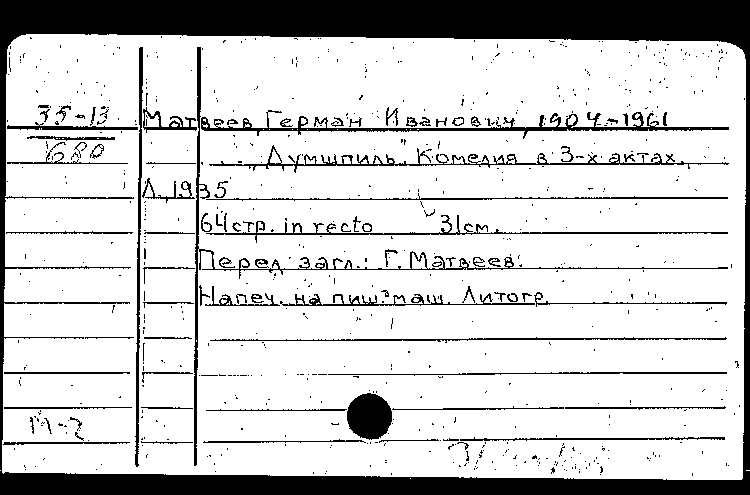 35-13
680
Матвеев, Герман Иванович, 1904-1961
"Думшпиль". Комедия в 3-х актах.
Л., 1935
64 стр. in recto 31 см.
Перед загл.: Г. Матвеев.
Напеч. на пиш. маш. Литогр.
М-2